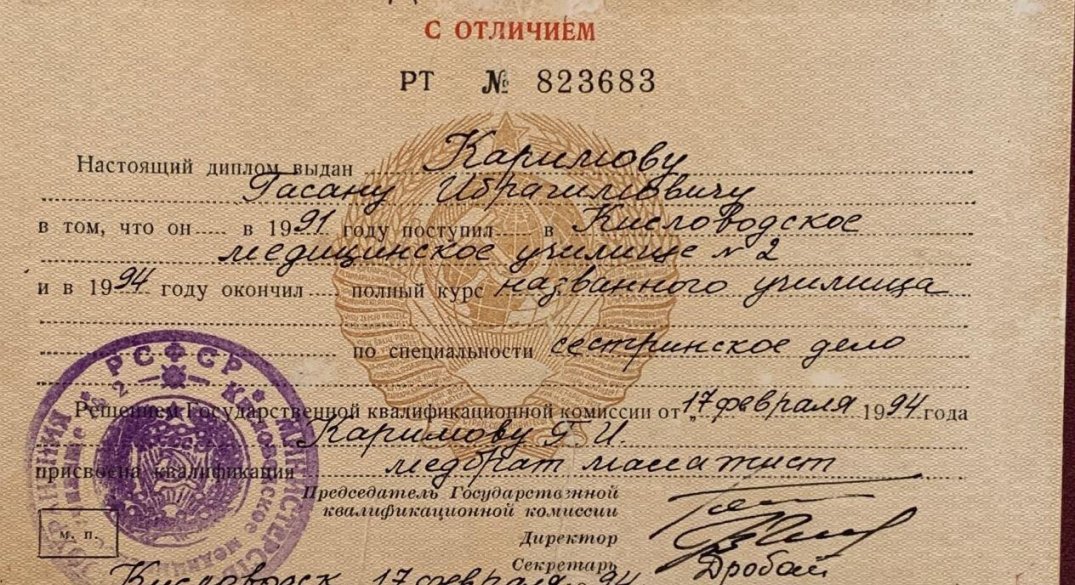 С ОТЛИЧИЕМ
РТ № 823683
Настоящий диплом выдан Каримову
Гасану Ибрагимовичу
в том, что он в 1991 году поступил в Кисловодское
медицинское училище №2
и в 1994 году окончил полный курс названного училища
по специальности сестринское дело
Решением Государственной квалификационной комиссии от „17 февраля 1994 года
Каримову Г. И.
присвоена квалификация медбрат массажист
Председатель Государственной
квалификационной комиссии
Директор
Секретарь Дробай
м. п.
Кисловодск 17 февраля 94
РСФСР